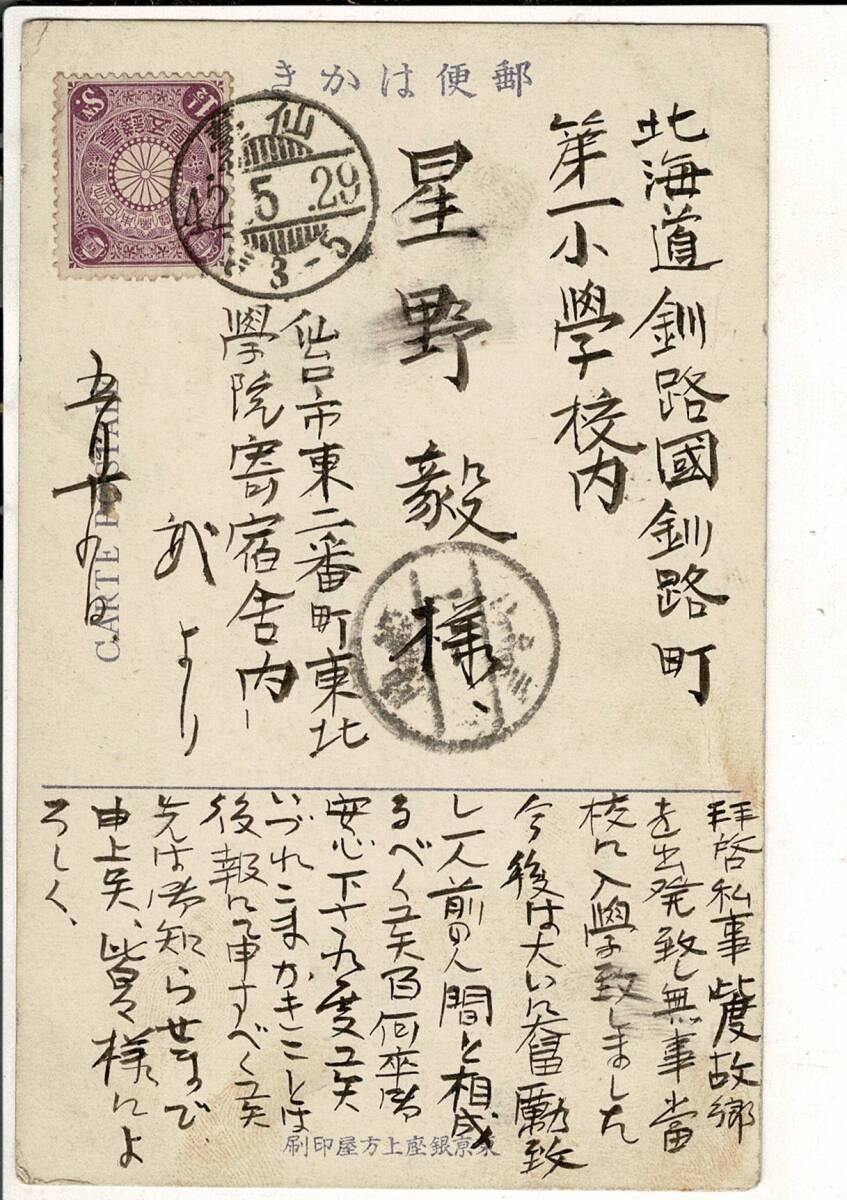 郵便はかき
仙臺
42.5.29
3-5
北海道釧路國釧路町
第一小學校内
星野毅様、
仙台市東二番町東北
學院寄宿舎内
より
五月廿九日
CARTE POSTALE
拝啓私事此度故郷
を出発致し無事當
校に入學致しました
今後は大いに奮勵致
し一人前の人間と相成
るべく候間何卒御
安心下され度候
いづれこまかきことは
後報にて申すべく候
先は御知らせまで
申上候、皆々様によ
ろしく、
東京銀座上方屋印刷